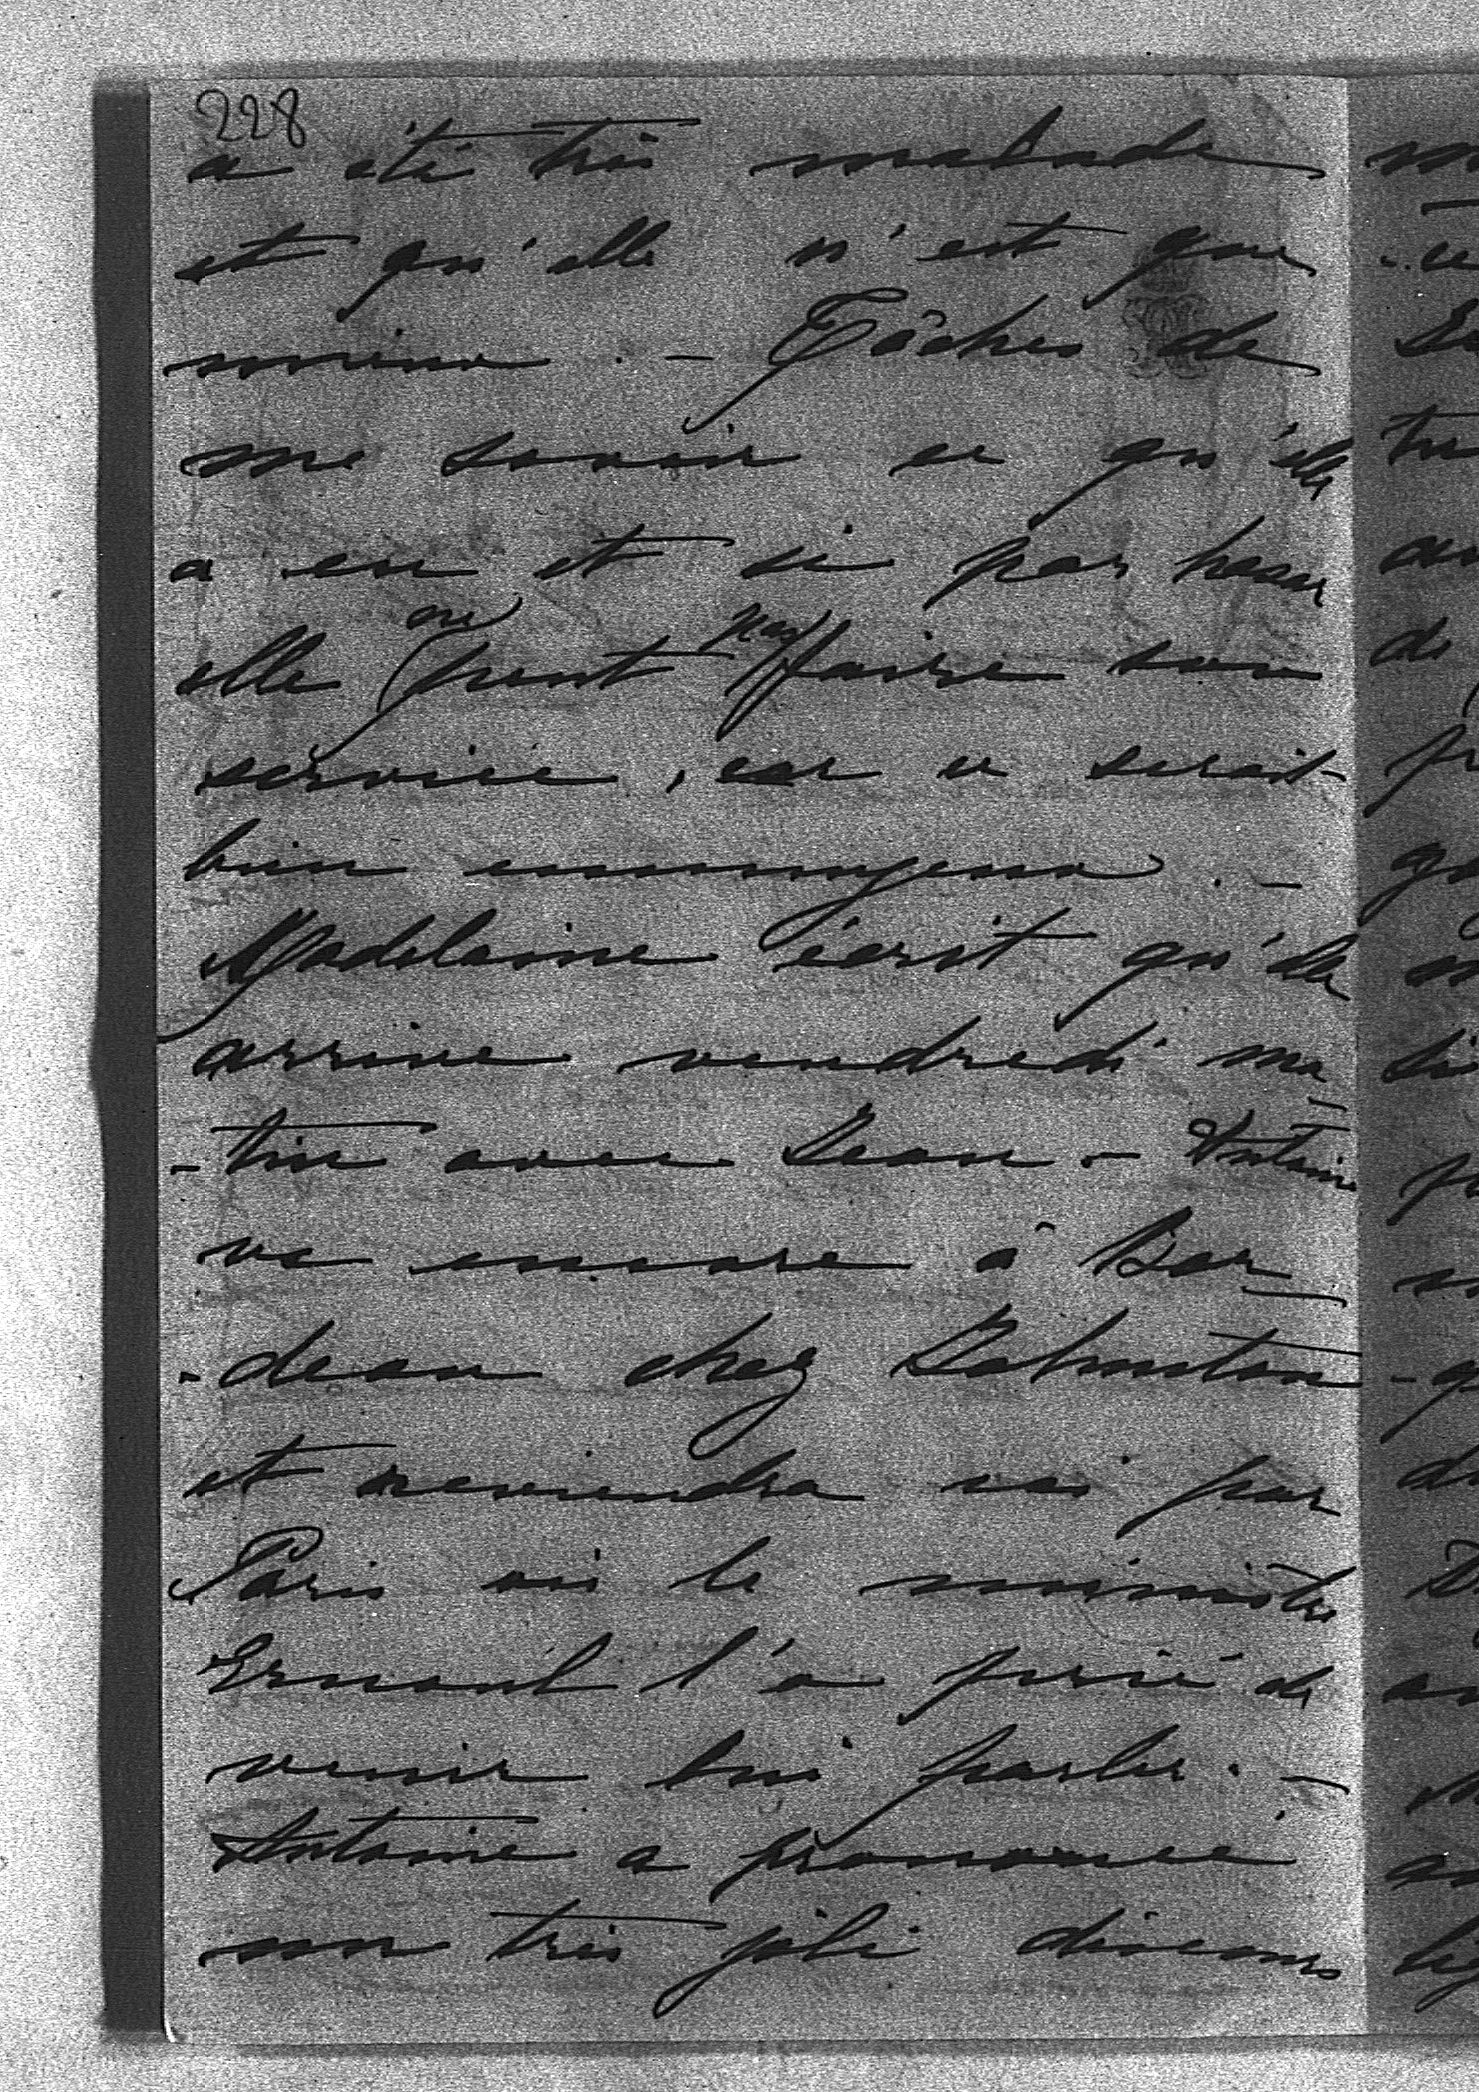 228
a été très malade
et qu'elle n'est que
mieux. - Tâchez de
me savoir ce qu'elle
a eu et si par hasar
elle ne peut pas faire son
service, car ce serait
bien ennuyeux. -
Madeleine écrit qu'elle
arrive vendredi ma
-tin avec Jean - Antoine
va encore à Bor
-deaux chez
et reviendra ici par
Paris où le ministre
l'a prié de
venir lui parler. -
Antoine a prononcé
un très joli discours